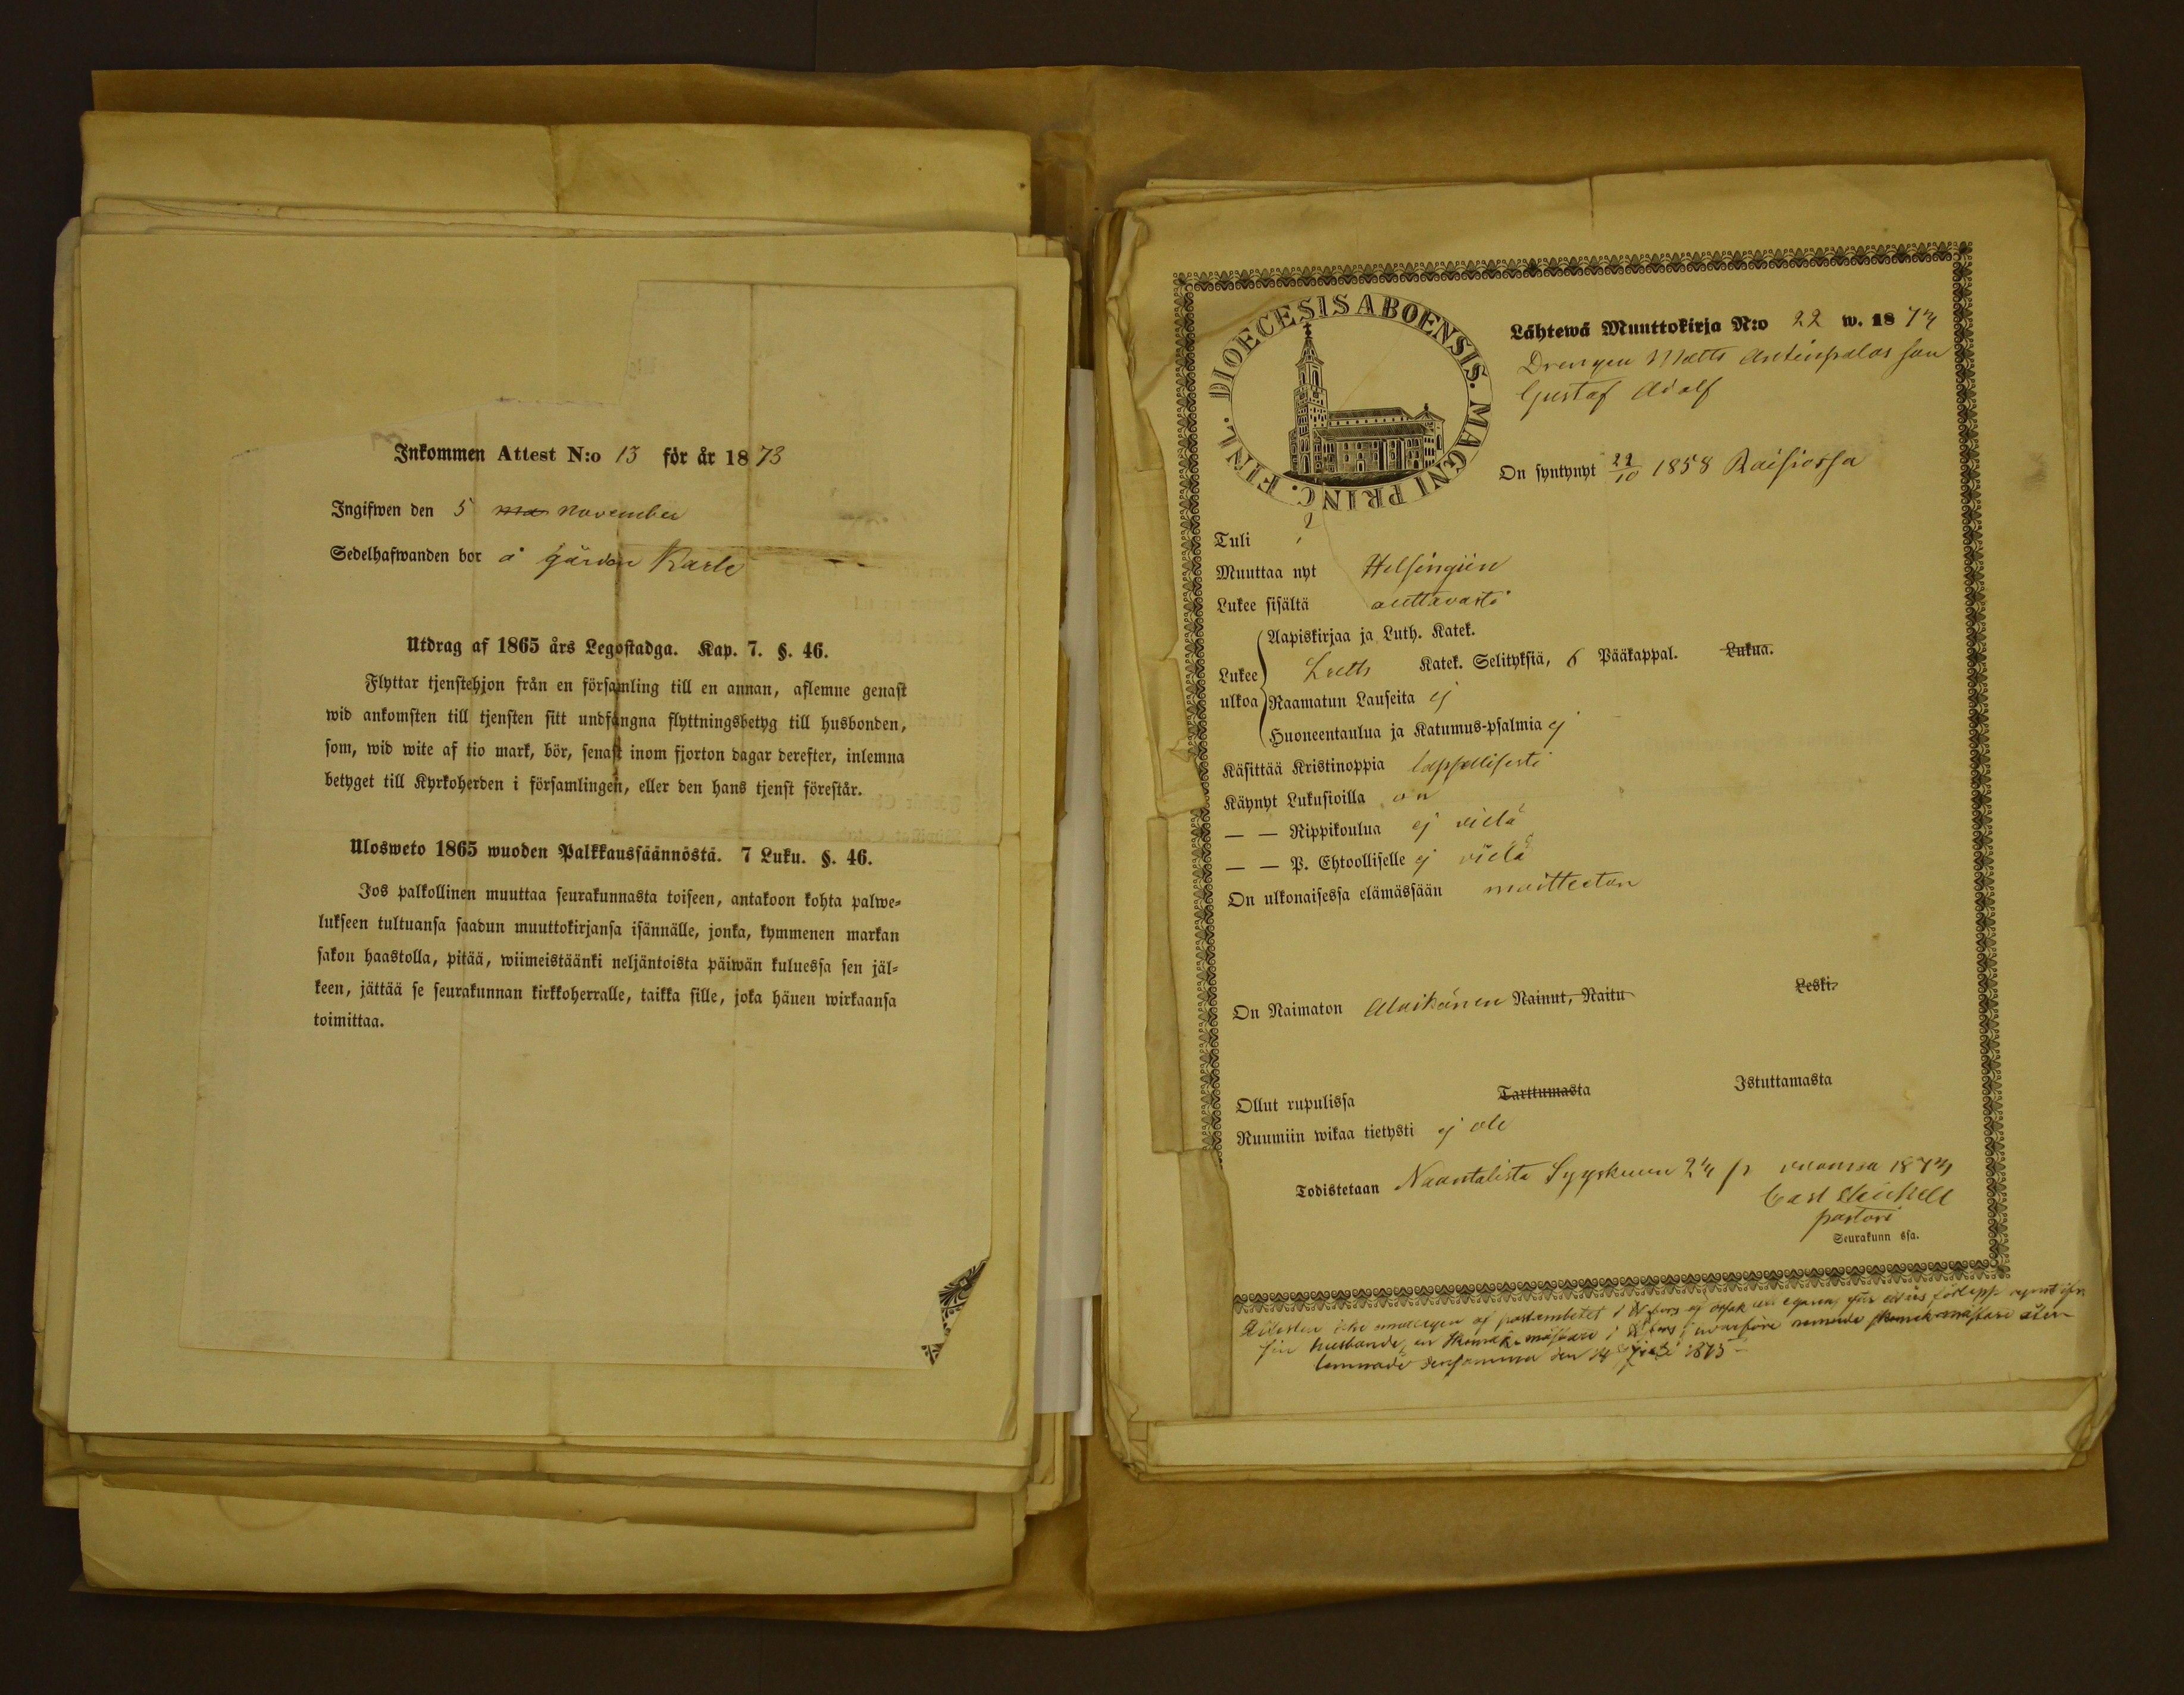 Inkommen Attest N:o 13 för år 1873
Ingifwen den 5 november
Sedelhafwanden bor å gården Karle
Utdrag af 1865 års Legostadga. Kap. 7. §. 46.
Flyttar tjenstehjon från en församling till en annan, aflemne genast
wid ankomsten till tjensten sitt undfångna flyttningsbetyg till husbonden,
som, wid wite af tio mark, bör, senast inom fjorton dagar derefter, inlemna
betyget till Kyrkoherden i församlingen, eller den hans tjenst förestår.
Ulosweto 1865 wuoden Palkkaussäännöstä. 7 Luku. §. 46.
Jos palkollinen muuttaa seurakunnasta toiseen, antakoon kohta palwe=
lukseen tultuansa saadun muuttokirjansa isännälle, jonka, kymmenen markan
sakon haastolla, pitää, wiimeistäänki neljäntoista päiwän kuluessa sen jäl=
keen, jättää se seurakunnan kirkkoherralle, taikka sille, joka hänen wirkaansa
toimittaa.
DIOECESIS ABOENSIS. MAGNI PRINC. FINL.
Lähtewä Muuttokirja N:o 22 w. 1874
Drengen Matts Antinpalos son
Gustaf Adolf
On syntynyt 22/10 1858 Raisiossa
Tuli ?
Muuttaa nyt Helsingiin
Lukee sisältä auttavasti
Aapiskirjaa ja Luth. Katek.
Lukee ulkoa Katek. Selityksiä, 6 Pääkappal. Lukua.
Raamatun Lauseita ej
Huoneentaulua ja Katumus-psalmia ej
Käsittää Kristinoppia lapsellisesti
Käynyt Lukusioilla on
— — Rippikoulua ej vielä
— — P. Ehtoolliselle ej vielä
On ulkonaisessa elämässään moitteeton
On Naimaton Alaikäinen Nainut, Naitu Leski.
Ollut rupulissa Tarttumasta Istuttamasta
Ruumiin wikaa tietysti ej ole
Todistetaan Naantalista Syyskuun 24 p vuonna 1874
Carl
pastori
Seurakunn ssa.
Attesten icke af pastorsembetet i H:fors ej
sin husbonde, en i H:fors, hvarföre
lemnade densamma den 14 1875